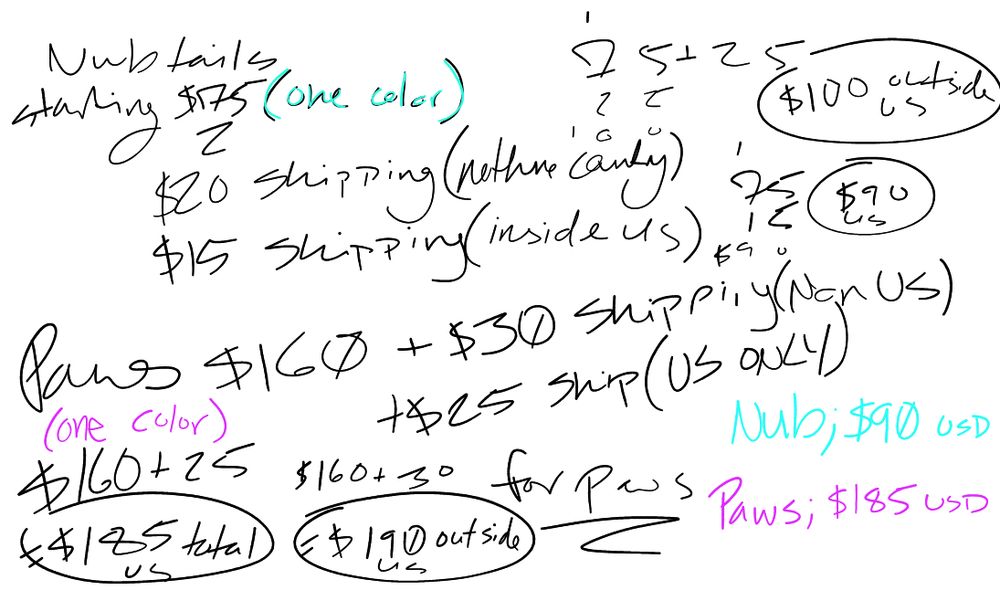 Nub tails
starting $75 (one color)
2
$20 shipping (
$15 shipping (inside US)
75+25
25
100
$100 outside
US
1
75
15
$90
$90
US
Paws $160 + $30 shipping (Non US)
+$25 ship (US ONLY)
(one color)
$160+25
=$185 total
US
$160+30
=$190 outside
US
for paws
Nub; $90 USD
Paws; $185 USD